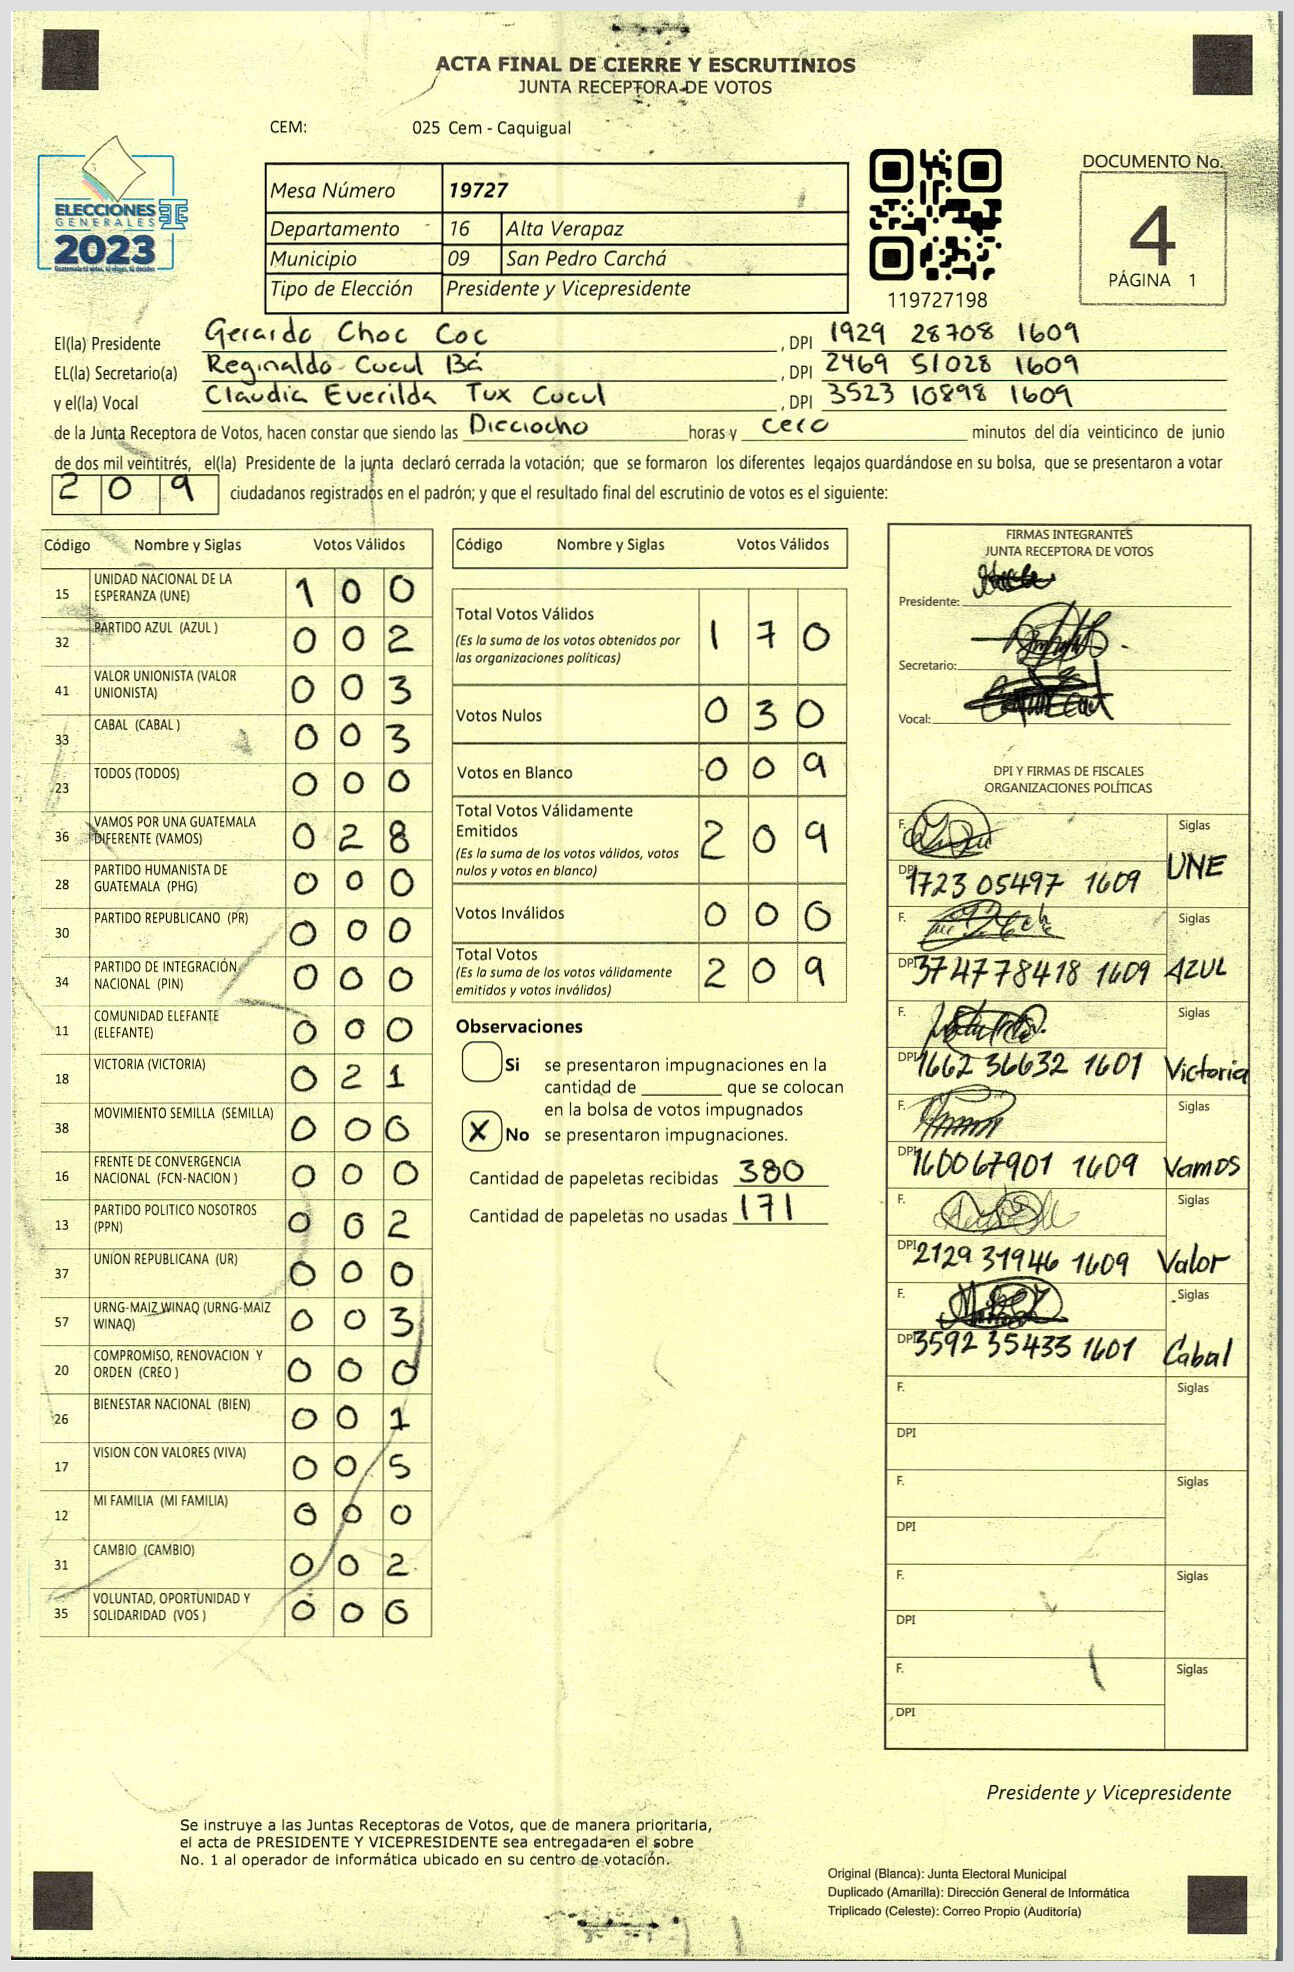 ACTA FINAL DE CIERRE Y ESCRUTINIOS
JUNTA RECEPTORA DE VOTOS
CEM: 025 Cem - Caquigual
ELECCIONES
GENERALES
2023
Guatemala tú votas, tú eliges, tú decides
Mesa Número 19727
Departamento 16 Alta Verapaz
Municipio 09 San Pedro Carchá
Tipo de Elección Presidente y Vicepresidente
119727198
DOCUMENTO No.
4
PÁGINA 1
El(la) Presidente Gerardo Choc Coc, DPI 1929 28708 1609
EL(la) Secretario(a) Reginaldo Cucul Bá, DPI 2469 51028 1609
y el(la) Vocal Claudia Everilda Tux Cucul, DPI 3523 10898 1609
de la Junta Receptora de Votos, hacen constar que siendo las Dieciocho horas y cero minutos del día veinticinco de junio
de dos mil veintitrés, el(la) Presidente de la junta declaró cerrada la votación; que se formaron los diferentes legajos guardándose en su bolsa, que se presentaron a votar
209 ciudadanos registrados en el padrón; y que el resultado final del escrutinio de votos es el siguiente:
Código Nombre y Siglas Votos Válidos
15 UNIDAD NACIONAL DE LA ESPERANZA (UNE) 1 0 0
32 PARTIDO AZUL (AZUL ) 0 0 2
41 VALOR UNIONISTA (VALOR UNIONISTA) 0 0 3
33 CABAL (CABAL ) 0 0 3
23 TODOS (TODOS) 0 0 0
36 VAMOS POR UNA GUATEMALA DIFERENTE (VAMOS) 0 2 8
28 PARTIDO HUMANISTA DE GUATEMALA (PHG) 0 0 0
30 PARTIDO REPUBLICANO (PR) 0 0 0
34 PARTIDO DE INTEGRACIÓN NACIONAL (PIN) 0 0 0
11 COMUNIDAD ELEFANTE (ELEFANTE) 0 0 0
18 VICTORIA (VICTORIA) 0 2 1
38 MOVIMIENTO SEMILLA (SEMILLA) 0 0 0
16 FRENTE DE CONVERGENCIA NACIONAL (FCN-NACION ) 0 0 0
13 PARTIDO POLITICO NOSOTROS (PPN) 0 0 2
37 UNION REPUBLICANA (UR) 0 0 0
57 URNG-MAIZ WINAQ (URNG-MAIZ WINAQ) 0 0 3
20 COMPROMISO, RENOVACION Y ORDEN (CREO ) 0 0 0
26 BIENESTAR NACIONAL (BIEN) 0 0 1
17 VISION CON VALORES (VIVA) 0 0 5
12 MI FAMILIA (MI FAMILIA) 0 0 0
31 CAMBIO (CAMBIO) 0 0 2
35 VOLUNTAD, OPORTUNIDAD Y SOLIDARIDAD (VOS ) 0 0 0
Código Nombre y Siglas Votos Válidos
Total Votos Válidos 1 7 0
(Es la suma de los votos obtenidos por
las organizaciones políticas)
Votos Nulos 0 3 0
Votos en Blanco 0 0 9
Total Votos Válidamente
Emitidos 2 0 9
(Es la suma de los votos válidos, votos
nulos y votos en blanco)
Votos Inválidos 0 0 0
Total Votos 2 0 9
(Es la suma de los votos válidamente
emitidos y votos inválidos)
Observaciones
Si se presentaron impugnaciones en la
cantidad de ________ que se colocan
en la bolsa de votos impugnados
X No se presentaron impugnaciones.
Cantidad de papeletas recibidas 380
Cantidad de papeletas no usadas 171
FIRMAS INTEGRANTES
JUNTA RECEPTORA DE VOTOS
Presidente:
Secretario:
Vocal:
DPI Y FIRMAS DE FISCALES
ORGANIZACIONES POLÍTICAS
F. Siglas
DPI 1723 05497 1609 UNE
F. Siglas
DPI 3747 78418 1609 AZUL
F. Siglas
DPI 1662 36632 1601 Victoria
F. Siglas
DPI 1600 67901 1609 Vamos
F. Siglas
DPI 2129 31946 1609 Valor
F. Siglas
DPI 3592 35433 1601 Cabal
F. Siglas
DPI
F. Siglas
DPI
F. Siglas
DPI
F. Siglas
DPI
Presidente y Vicepresidente
Se instruye a las Juntas Receptoras de Votos, que de manera prioritaria,
el acta de PRESIDENTE Y VICEPRESIDENTE sea entregada en el sobre
No. 1 al operador de informática ubicado en su centro de votación.
Original (Blanca): Junta Electoral Municipal
Duplicado (Amarilla): Dirección General de Informática
Triplicado (Celeste): Correo Propio (Auditoría)